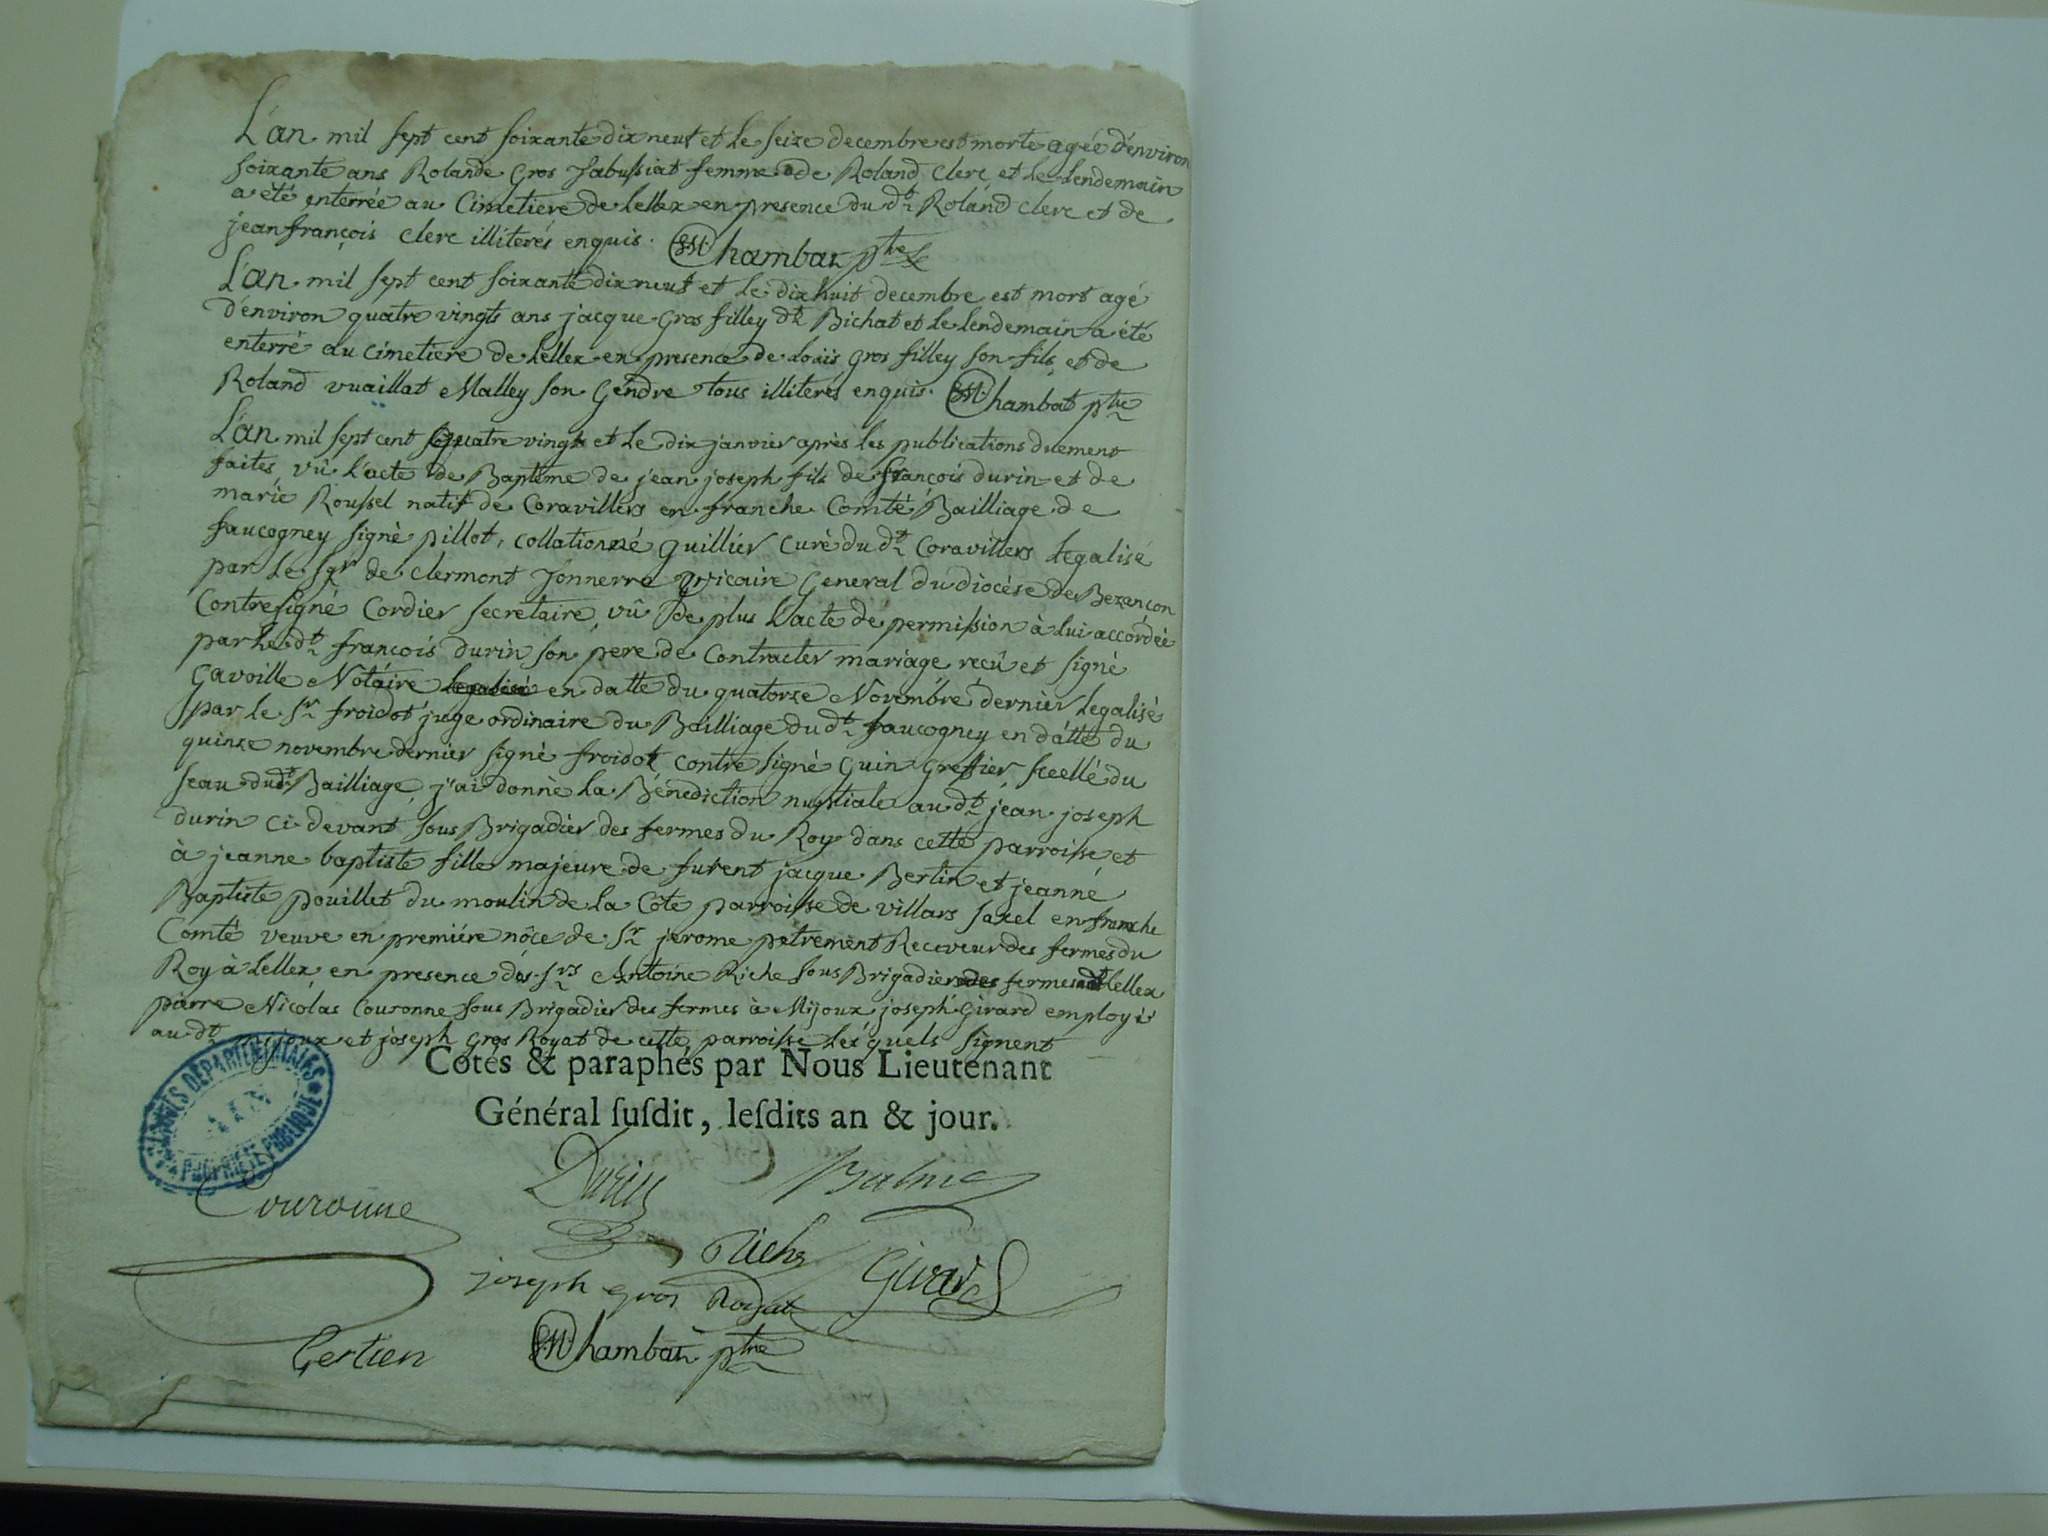 L'an mil sept cent soixante dix neuf et le seize decembre est morte agée d'environ
soixante ans Rolande Gros Jabussiat femme de Roland Clerc et le lendemain
a été enterrée au Cimetiere de Lellex en presence du dt Roland clerc et de
jean françois clerc illiterés enquis. Chambat ptre
L'an mil sept cent soixante dix neuf et le dix huit decembre est mort agé
d'environ quatre vingts ans jacque Gros filley dt Bichat et le lendemain a été
enterré au cimetiere de Lellex en presence de Loüis Gros filley son fils et de
Roland vuaillat Malley son Gendre tous illiterés enquis. Chambat ptre
L'an mil sept cent quatre vingts et le dix janvier après les publications duement
faites, vû l'acte de Baptême de jean joseph fils de françois durin et de
marie Roussel natif de Coravillers en franche Comté Bailliage de
faucogney signé pillot, collationné Guillier Curé du dt Coravillers legalisé
par le sgr de clermont Tonnerre vicaire General du diocèse de Bezançon
Contresigné Cordier secretaire, vû de plus l'acte de permission à lui accordée
par le dt françois durin son pere de Contracter mariage reçû et signé
Gavoille Notaire legalisé en datte du quatorze Novembre dernier legalisé
par le sr froidot juge ordinaire du Bailliage du dt faucogney en datte du
quinze novembre dernier signé froidot contre signé Guin Greffier, scellé du
seau dudt Bailliage, j'ai donné la Bénédiction nuptiale au dt jean joseph
durin ci devant sous Brigadier des fermes du Roy dans cette parroisse et
à jeanne baptiste fille majeure de furent jacque Bertin et jeanne
Baptiste pouillet du moulin de la Côte parroisse de villars saxel en franche
Comté veuve en premiére nôce de sr jerome petrement Receveur des fermes du
Roy à Lellex en presence des srs Antoine Riche sous Brigadier des fermes Lellex
pierre Nicolas Couronne sous Brigadier des fermes à Mijoux joseph Girard employé
au dt mijoux et joseph Gros Royat de cette parroisse lesquels signent
Cotés & paraphés par Nous Lieutenant
Général susdit, lesdits an & jour.
ARCHIVES DÉPARTEMENTALES
AIN
PROPRIÉTÉ PUBLIQUE
Durin Balme
Couronne
Riche Girard
joseph gros Royat
Chambat ptre